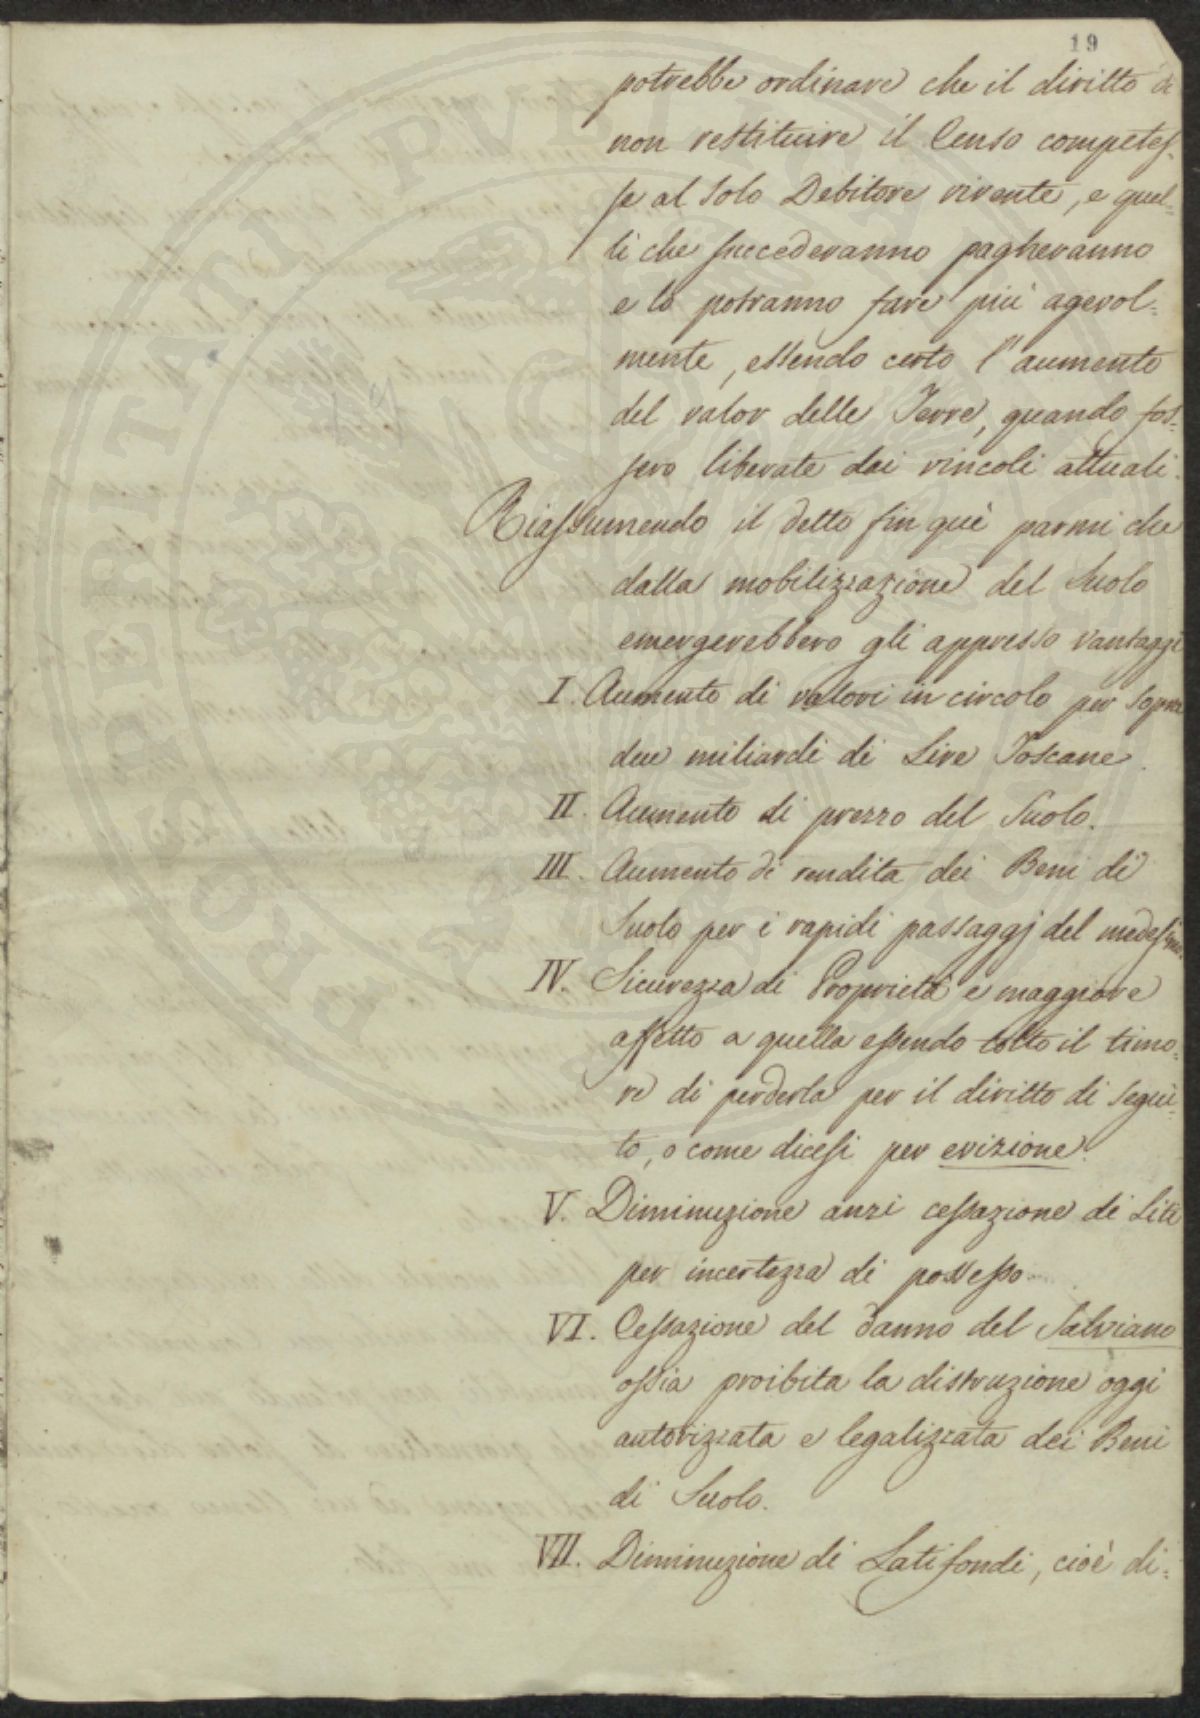 19
potrebbe ordinare che il diritto di
non restituire il Censo competes-
se al solo Debitore vivente, e quel=
li che succederanno pagheranno
e lo potranno fare più agevol=
mente, essendo certo l'aumento
del valor delle Terre, quando fos=
sero liberate dai vincoli attuali.
Riassumendo il detto fin quì parmi che
dalla mobilizzazione del Suolo
emergerebbero gli appresso vantaggi
I. Aumento di valori in circolo per sopra
due miliardi di Lire Toscane.
II. Aumento di prezzo del Suolo.
III. Aumento di rendita dei Beni di
Suolo per i rapidi passaggj del medesimo.
IV. Sicurezza di Proprietà e maggiore
affetto a quella essendo tolto il timo=
re di perderla per il diritto di segui=
to, o come dicesi per evizione.
V. Diminuzione anzi cessazione di Liti
per incertezza di possesso.
VI. Cessazione del danno del Salviano
ossia proibita la distruzione oggi
autorizzata e legalizzata dei Beni
di Suolo.
VII. Diminuzione di Latifondi, cioè di=
PROPRIETATI PVBLICA